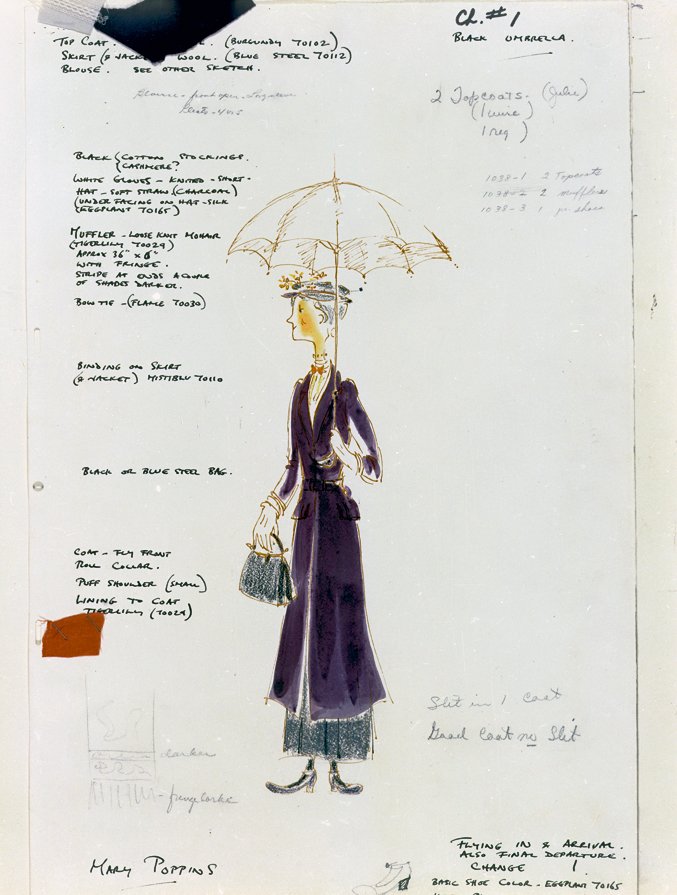 Ch. #1
BLACK UMBRELLA.
TOP COAT. (BURGUNDY 70102)
SKIRT (& JACKET) WOOL. (BLUE STEEL 70112)
BLOUSE. SEE OTHER SKETCH.
2 Topcoats. (Julie)
(1 wire)
1 reg)
BLACK (COTTON STOCKINGS.
(CASHMERE?
WHITE GLOVES - KNITED - SHORT.
HAT - SOFT STRAW (CHARCOAL)
(UNDER FACING ON HAT - SILK
(EGGPLANT 70165)
1038-1 2 Topcoats
1038-2 2 mufflers
1038-3 1 pr shoes
MUFFLER - LOOSE KNIT MOHAIR
(TIGERLILY 70029)
APPROX 36" x 8"
WITH FRINGE.
STRIPE AT ENDS A COUPLE
OF SHADES DARKER.
BOW TIE - (FLAME 70030)
BINDING ON SKIRT
(& JACKET) MISTIBLU 70110
BLACK OR BLUE STEEL BAG.
COAT - FLY FRONT
ROLL COLLAR.
PUFF SHOULDER (SMALL)
LINING TO COAT
TIGERLILY (70029)
Slit in 1 coat
Good Coat no Slit
darker
- fringe darker
MARY POPPINS
FLYING IN & ARRIVAL.
ALSO FINAL DEPARTURE.
CHANGE 1
BASIC SHOE COLOR - EGGPLANT 70165